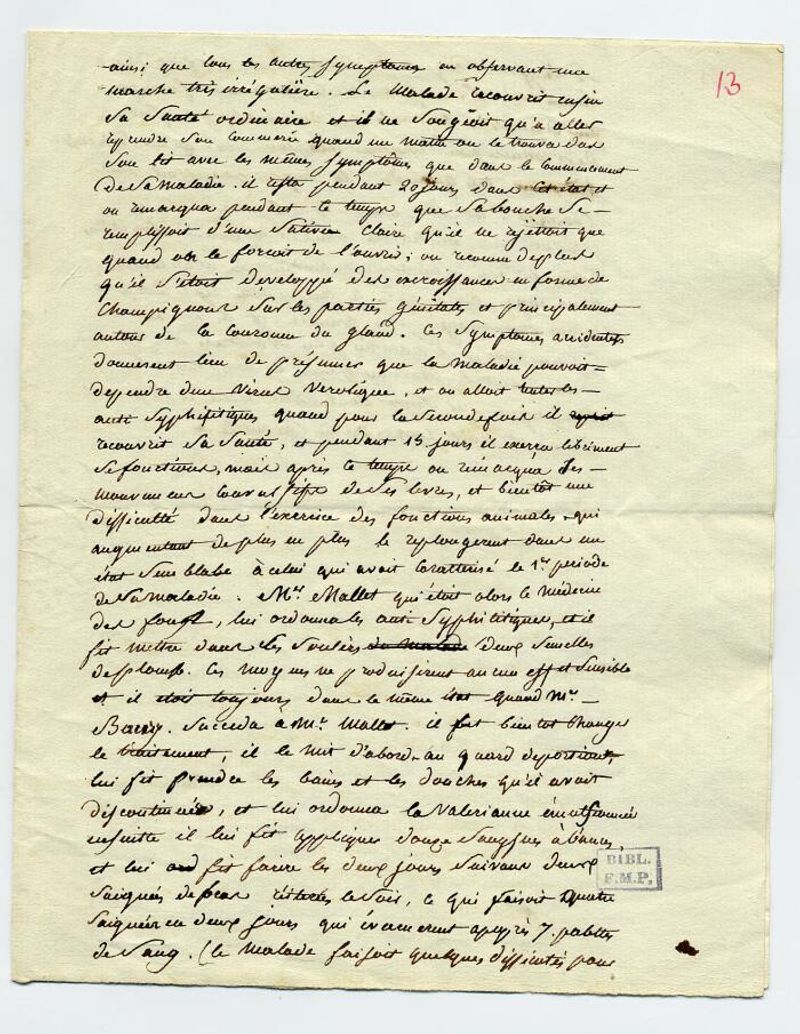 13
ainsi que tous les autres symptomes en observant une
marche très irrégulière. Le malade recouvrit enfin
sa santé ordinaire et il ne songeoit qu'a aller
reprendre son commerce quand un matin on le trouva dans
son lit avec les mêmes symptômes que dans le commencement
de sa maladie. il resta pendant 20 jours dans cet état et
on remarqua pendant ce temps que sa bouche se
remplissoit d'une salive claire qu'il ne rejettoit que
quand on le forçoit de l'ouvrir; on reconnu de plus
qu'il s'étoit développé des excroissances en forme de
champignons sur les parties génitales et principalement
autour de la couronne du gland. Ces symptomes accidentels
donnerent lieu de présumer que la maladie pouvoit
dependre d'un virus verolique, et on alloit les
anti syphilitiques quand pour la seconde fois il
recouvrit sa santé, et pendant 15 jours il exerça librement
se fonctions, mais après ce temps on remarqua des
mouvemens convulsifs de ses levres, et bientôt une
difficulté dans l'exercice des fonctions animales qui
augmentant de plus en plus le replongerent dans un
état semblable à celui qui avoit caractérisé le 1er periode
de sa maladie. Mr Mallet qui étoit alors le médecin
des foux, lui ordonna les anti syphilitiques, et il
fit mettre dans les souliers du malade deux semelles
de plomb. Ces moyens ne produisirent aucun effet sensible
et il etoit toujours dans le même état quand Mr
succeda à Mr Mallet. il fit bientot changer
le traitement, il le mit d'abord au quard de portion,
lui fit prendre les bains et les douches qu'il avoit
discontinués, et lui ordonna la valerianne
ensuitte il lui fit appliquer douze sangsues à l'anus,
et lui ord fit faire les deux jours suivans deux
saignés de bras le soir, ce qui faisoit quatre
saignées en deux jours qui évacuerent apeuprès 7. palettes
de sang. (le malade faisoit quelques difficultés pour
BIBL.
F.M.P.